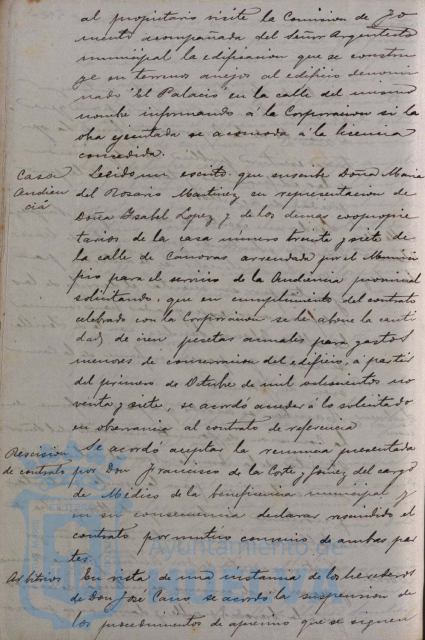 al propietario visite la Comision de Fo
mento acompañada del Señor Arquitecto
municipal la edificacion que se constru
ye en terrenos anejos al edificio denomi
nado "El Palacio" en la calle del mismo
nombre informando á la Corporacion si la
obra ejecutada se acomoda á la licencia
concedida.
Casa
Audien
cia
Leido un escrito que suscribe Doña Maria
del Rosario Martinez en representacion de
Doña Ysabel Lopez y de los demas copropie
tarios de la casa número treinta y siete de
la calle de Cánovas arrendada por el Munici
pio para el servicio de la Audiencia provincial
solicitando, que en cumplimiento del contrato
celebrado con la Corporacion se le abone la canti
dad de cien pesetas anuales para gastos
menores de conservacion del edificio, á partir
del primero de Octubre de mil ochocientos no
venta y siete, se acordó acceder á lo solicitado
en observancia al contrato de referencia.
Rescision
de contrato
Se acordó aceptar la renuncia presentada
por Don Francisco de la Corte y Gomez del cargo
de Médico de la beneficencia municipal y
en su consecuencia declarar rescindido el
contrato por mutuo convenio de ambas par
tes.
Arbitrios
En vista de una instancia de los herederos
de Don José Cano se acordó la suspension de
los procedimientos de apremio que se siguen
Ayuntamiento de